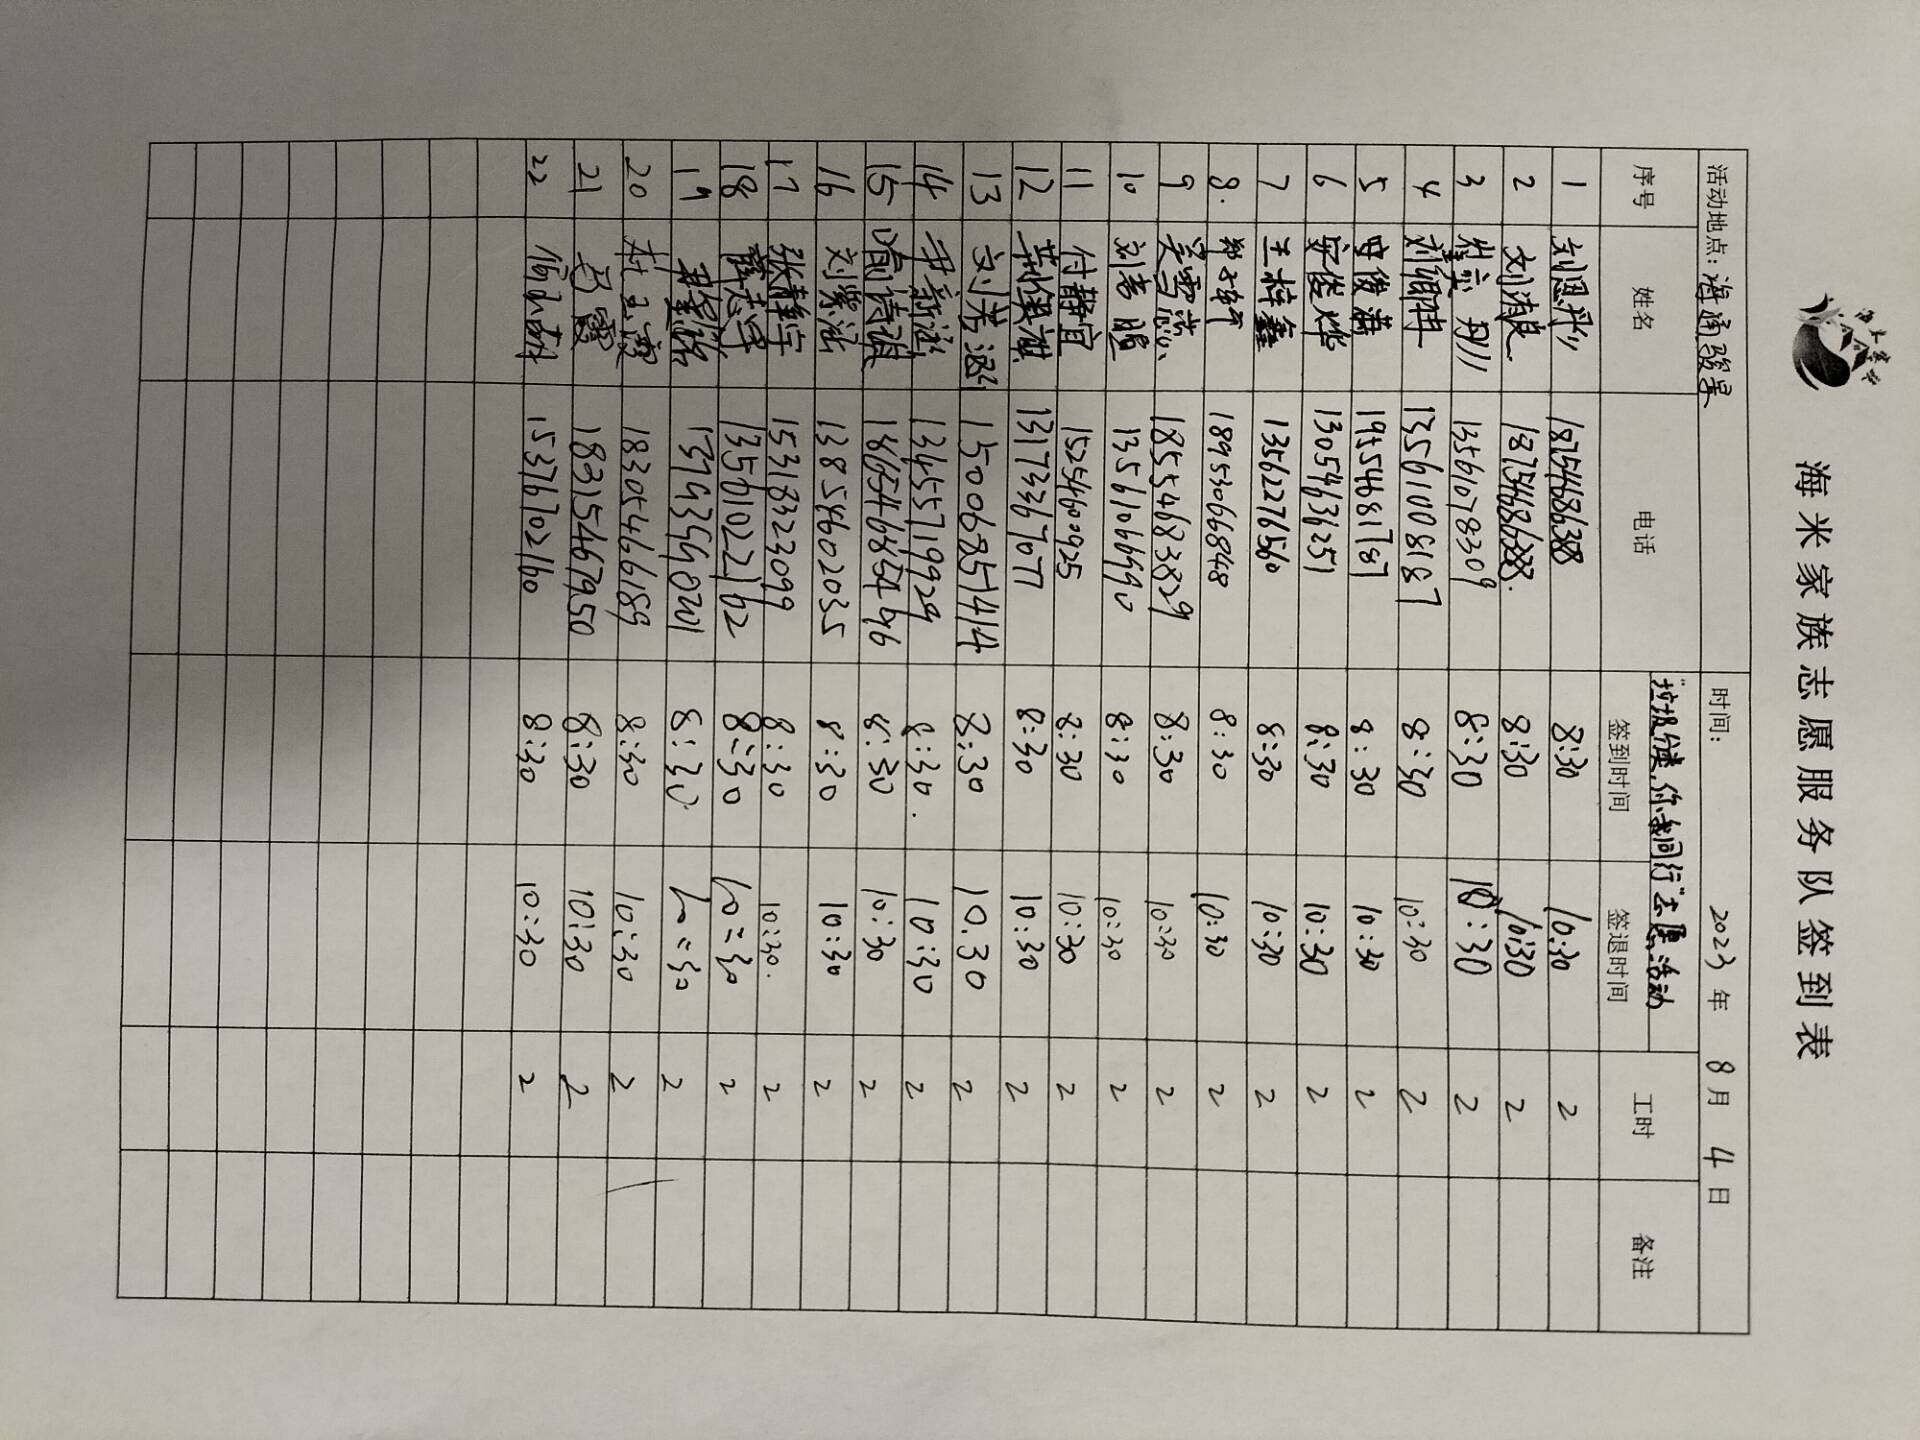 海米家族志愿服务队签到表
活动地点：海通骏景 时间： 2023 年 8 月 4 日
"垃圾分类，你我同行"志愿活动
序号 姓名 电话 签到时间 签退时间 工时 备注
1 18754686388 8:30 10:30 2
2 8:30 10:30 2
3 13561078309 8:30 10:30 2
4 13561008187 8:30 10:30 2
5 19554681787 8:30 10:30 2
6 安俊烨 13054636251 8:30 10:30 2
7 王梓鑫 13562276560 8:30 10:30 2
8. 18953066848 8:30 10:30 2
9 吴雪蕊 18554683829 8:30 10:30 2
10 13561066690 8:30 10:30 2
11 付静宜 15254600925 8:30 10:30 2
12 13173367077 8:30 10:30 2
13 刘芳涵 15006851414 8:30 10.30 2
14 13455719929 8:30. 10:30 2
15 18654685496 8:30 10:30 2
16 13858602035 8:30 10:30 2
17 张静宇 15318323099 8:30 10:30. 2
18 13501022162 8:30 10:30 2
19 8:30 10:30 2
20 18305466189 8:30 10:30 2
21 18315467950 8:30 10:30 2
22 15376702160 8:30 10:30 2